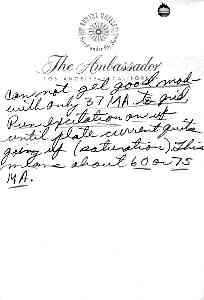 The Ambassador
LOS ANGELES, CALIFORNIA
Can not get good mod
with only 37 MA to grid
Run excitation on up
until plate current quits
going up (saturation) This
means about 60 or 75
MA.